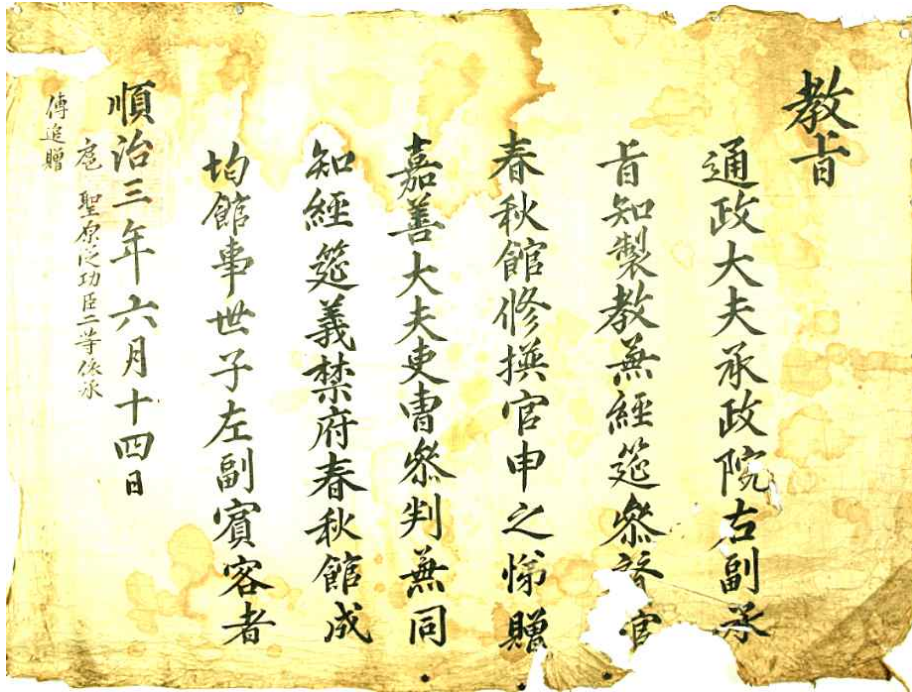 教旨
通政大夫承政院右副承
旨知製教兼經筵叅贊官
春秋館修撰官申之悌贈
嘉善大夫吏曺叅判兼同
知經筵義禁府春秋館成
均館事世子左副賓客者
順治三年六月十四日
扈聖原從功臣二等依承
傳追贈